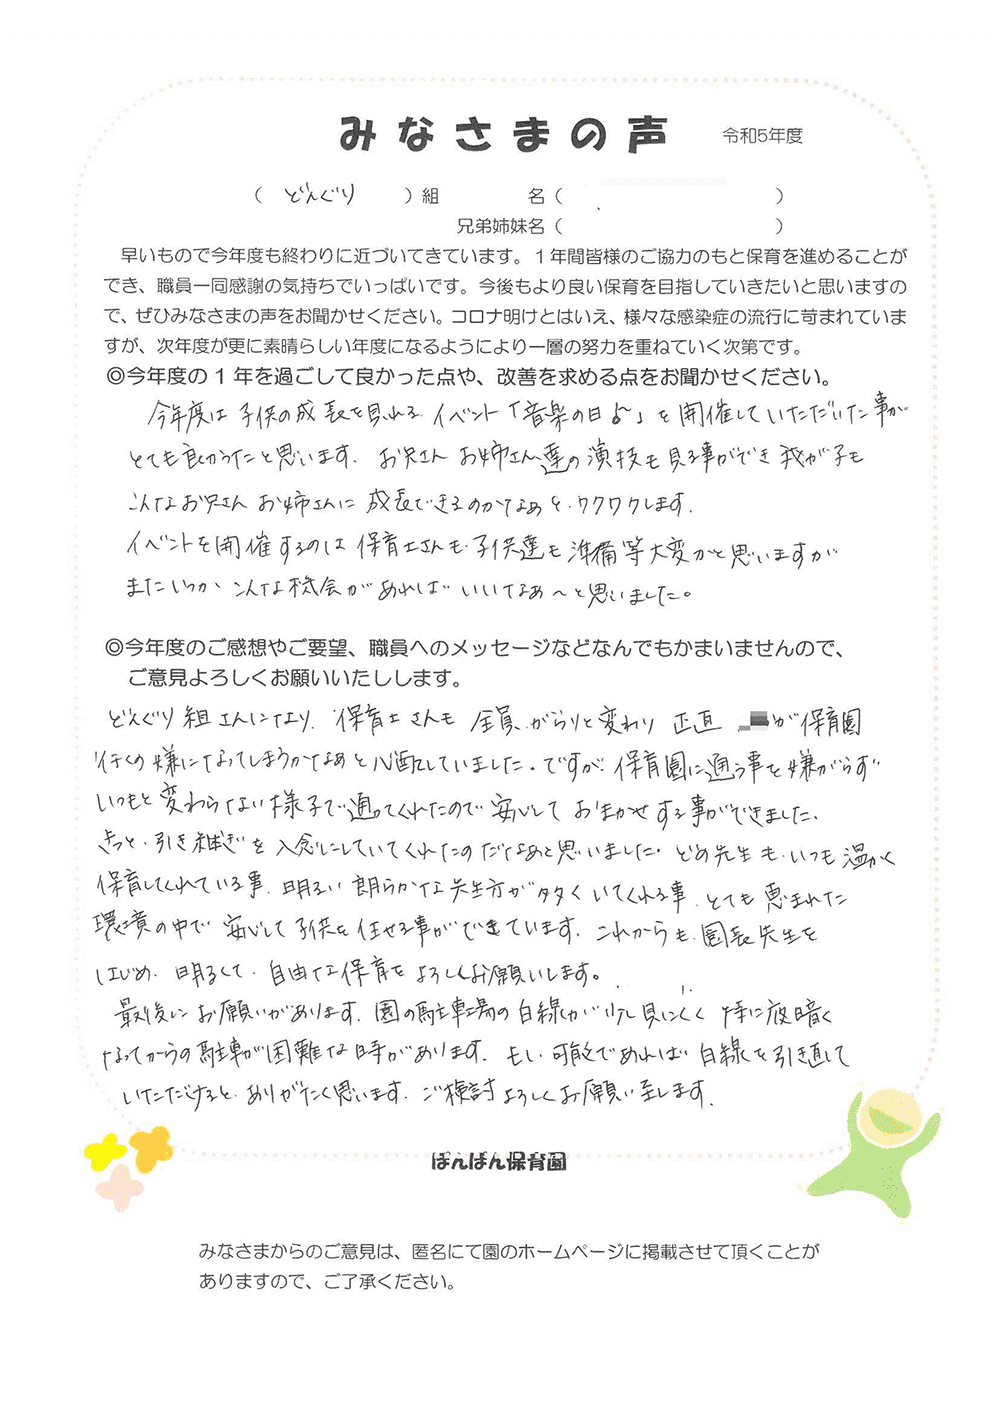 みなさまの声 令和5年度
（ どんぐり ）組 名（ ）
兄弟姉妹名（ ）
早いもので今年度も終わりに近づいてきています。１年間皆様のご協力のもと保育を進めることが
でき、職員一同感謝の気持ちでいっぱいです。今後もより良い保育を目指していきたいと思いますの
で、ぜひみなさまの声をお聞かせください。コロナ明けとはいえ、様々な感染症の流行に苛まれていま
すが、次年度が更に素晴らしい年度になるようにより一層の努力を重ねていく次第です。
◎今年度の１年を過ごして良かった点や、改善を求める点をお聞かせください。
今年度は子供の成長を見れるイベント「音楽の日♪」を開催していただいた事が
とても良かったと思います。お兄さんお姉さん達の演技も見る事ができ我が子も
こんなお兄さんお姉さんに成長できるのかなぁと、ワクワクします。
イベントを開催するのは保育士さんも子供達も準備等大変かと思いますが
またいつかこんな機会があればいいなぁ〜と思いました。
◎今年度のご感想やご要望、職員へのメッセージなどなんでもかまいませんので、
ご意見よろしくお願いいたしします。
どんぐり組さんになり、保育士さんも全員がらりと変わり正直 が保育園
行くの嫌になってしまうかなぁと心配していました。ですが保育園に通う事を嫌がらず
いつもと変わらない様子で通ってくれたので安心しておまかせする事ができました。
きっと、引き継ぎを入念にしていてくれたのだなぁと思いました。どの先生も、いつも温かく
保育してくれている事、明るい朗らかな先生方が多くいてくれる事、とても恵まれた
環境の中で安心して子供を任せる事ができています。これからも、園長先生を
はじめ、明るくて、自由な保育をよろしくお願いします。
最後にお願いがあります。園の駐車場の白線が少し見にくく特に夜暗く
なってからの駐車が困難な時があります。もし可能であれば白線を引き直して
いただけるとありがたく思います。ご検討よろしくお願い致します。
ぽんぽん保育園
みなさまからのご意見は、匿名にて園のホームページに掲載させて頂くことが
ありますので、ご了承ください。